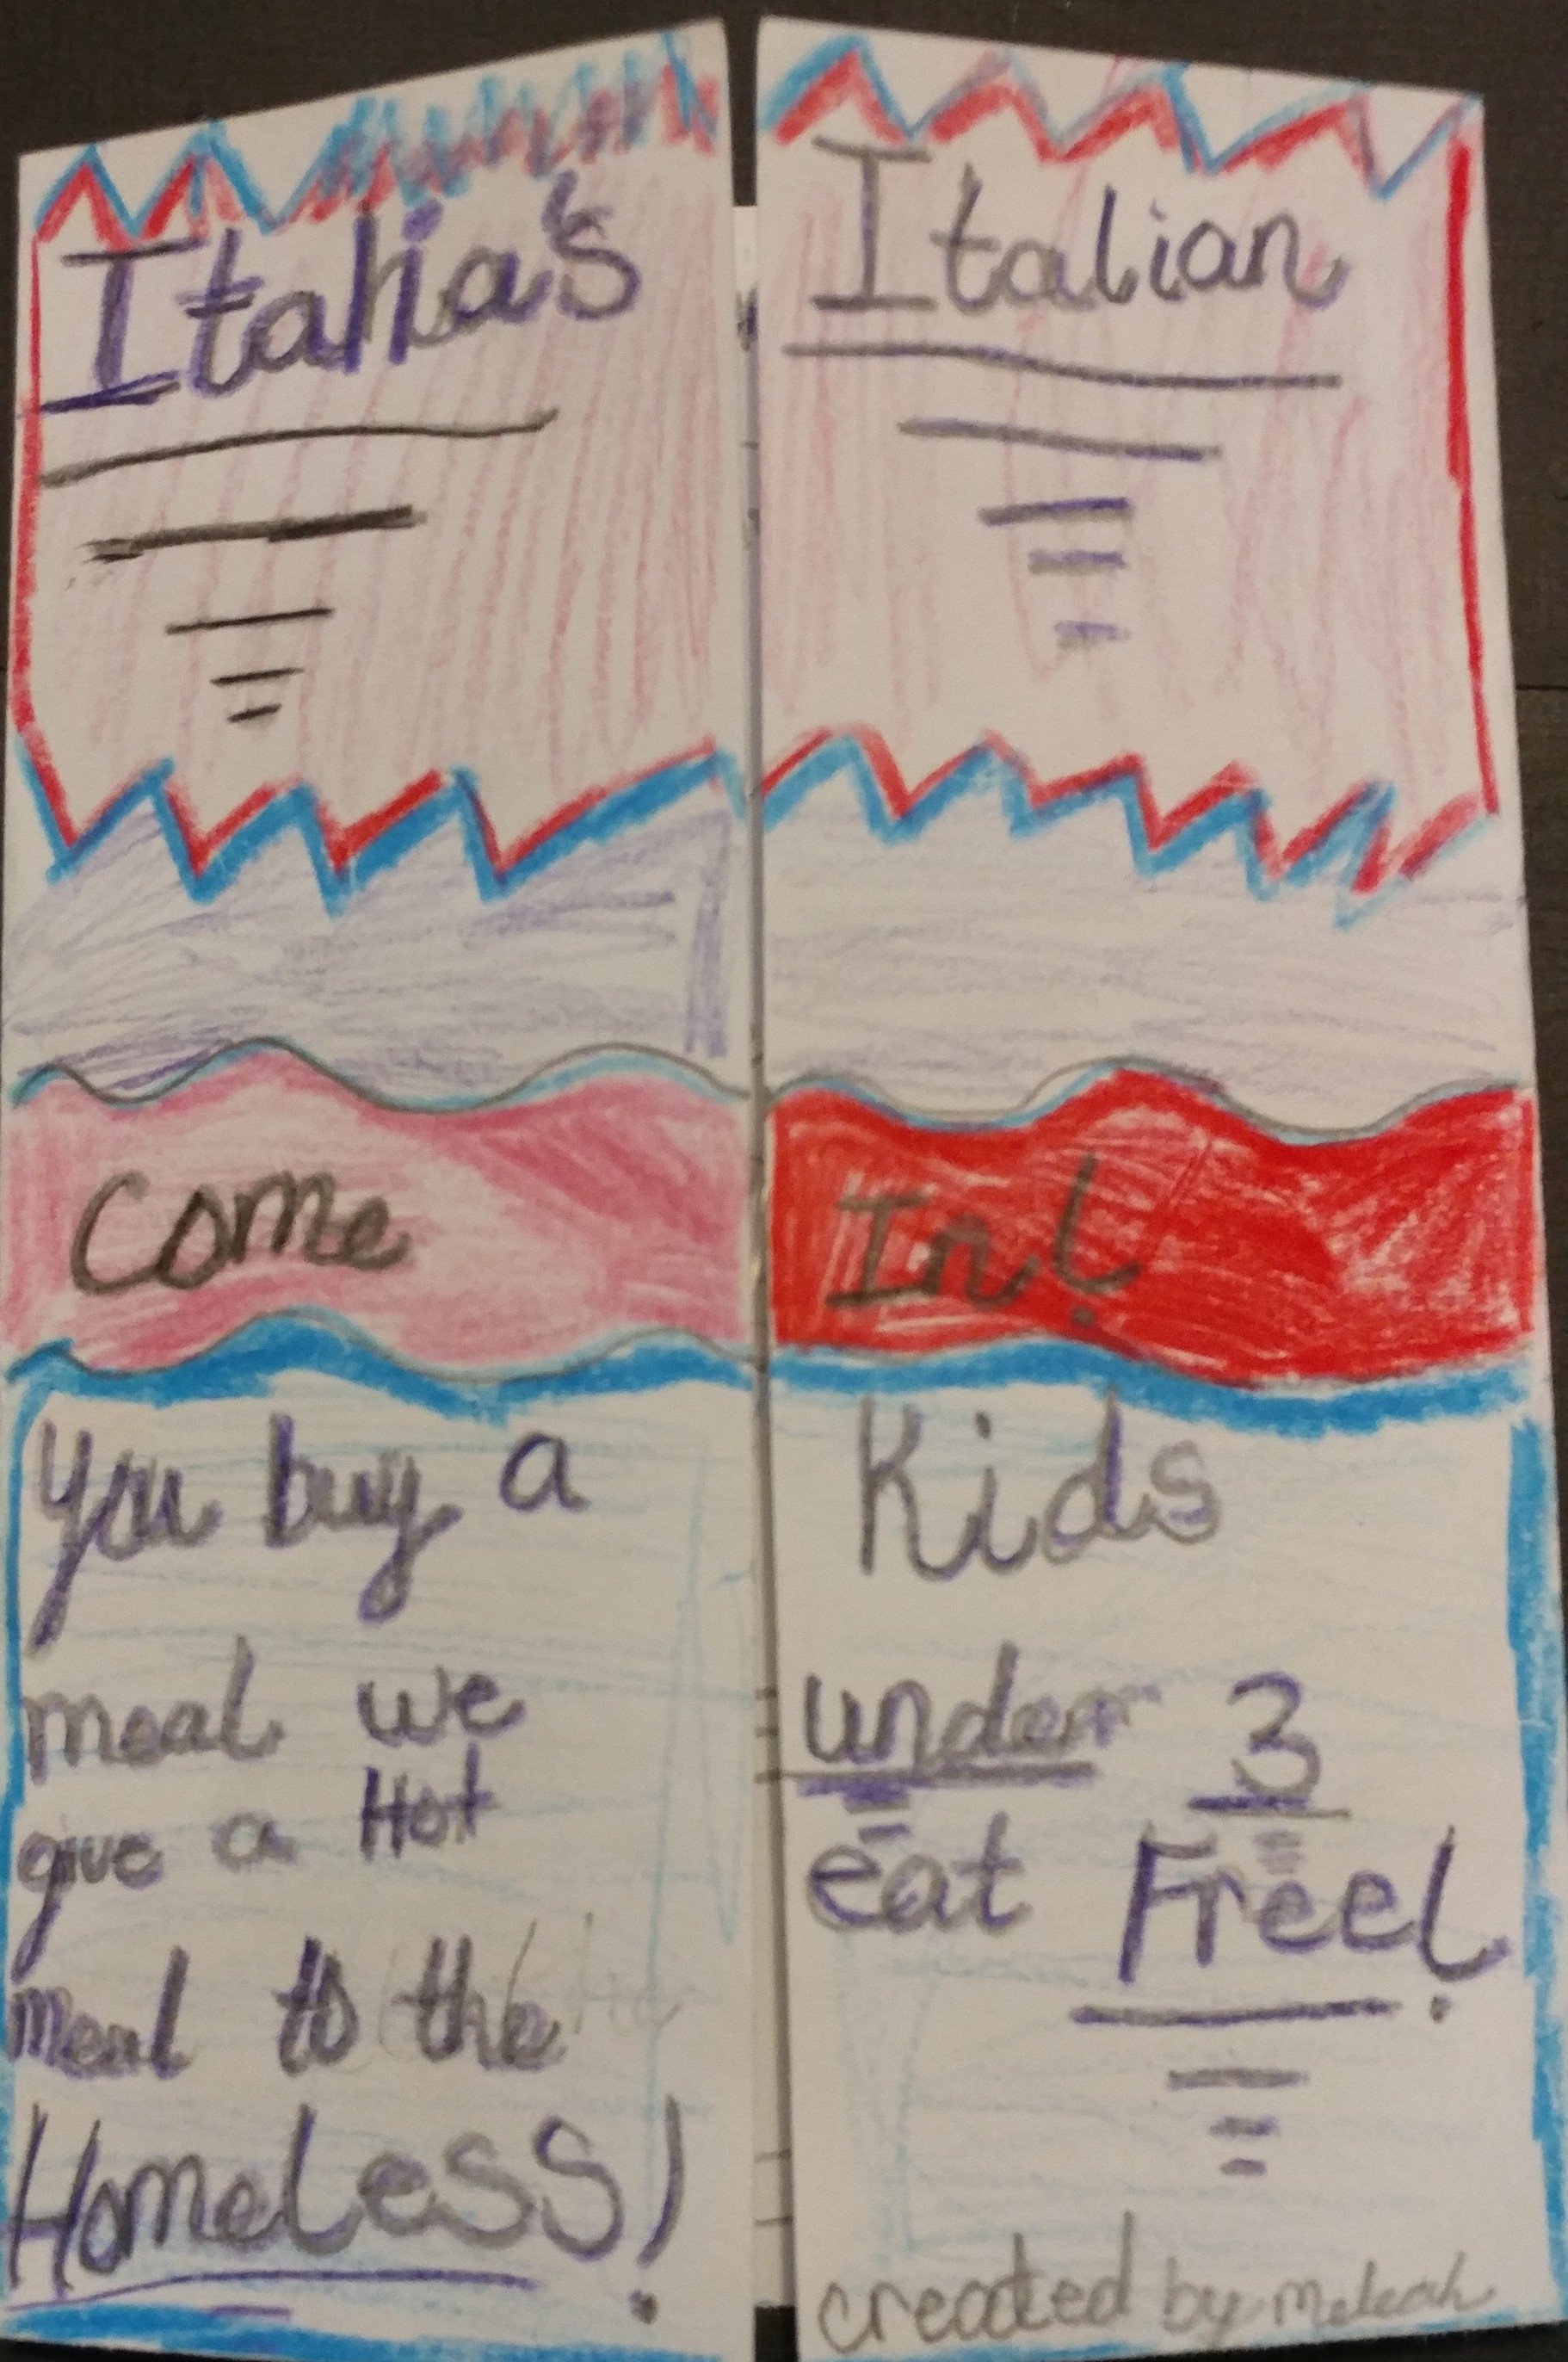 Italia's
Italian
Come
In!
you buy a
meal we
give a Hot
meal to the
HomeLess!
Kids
under 3
eat Free!
created by Meleah